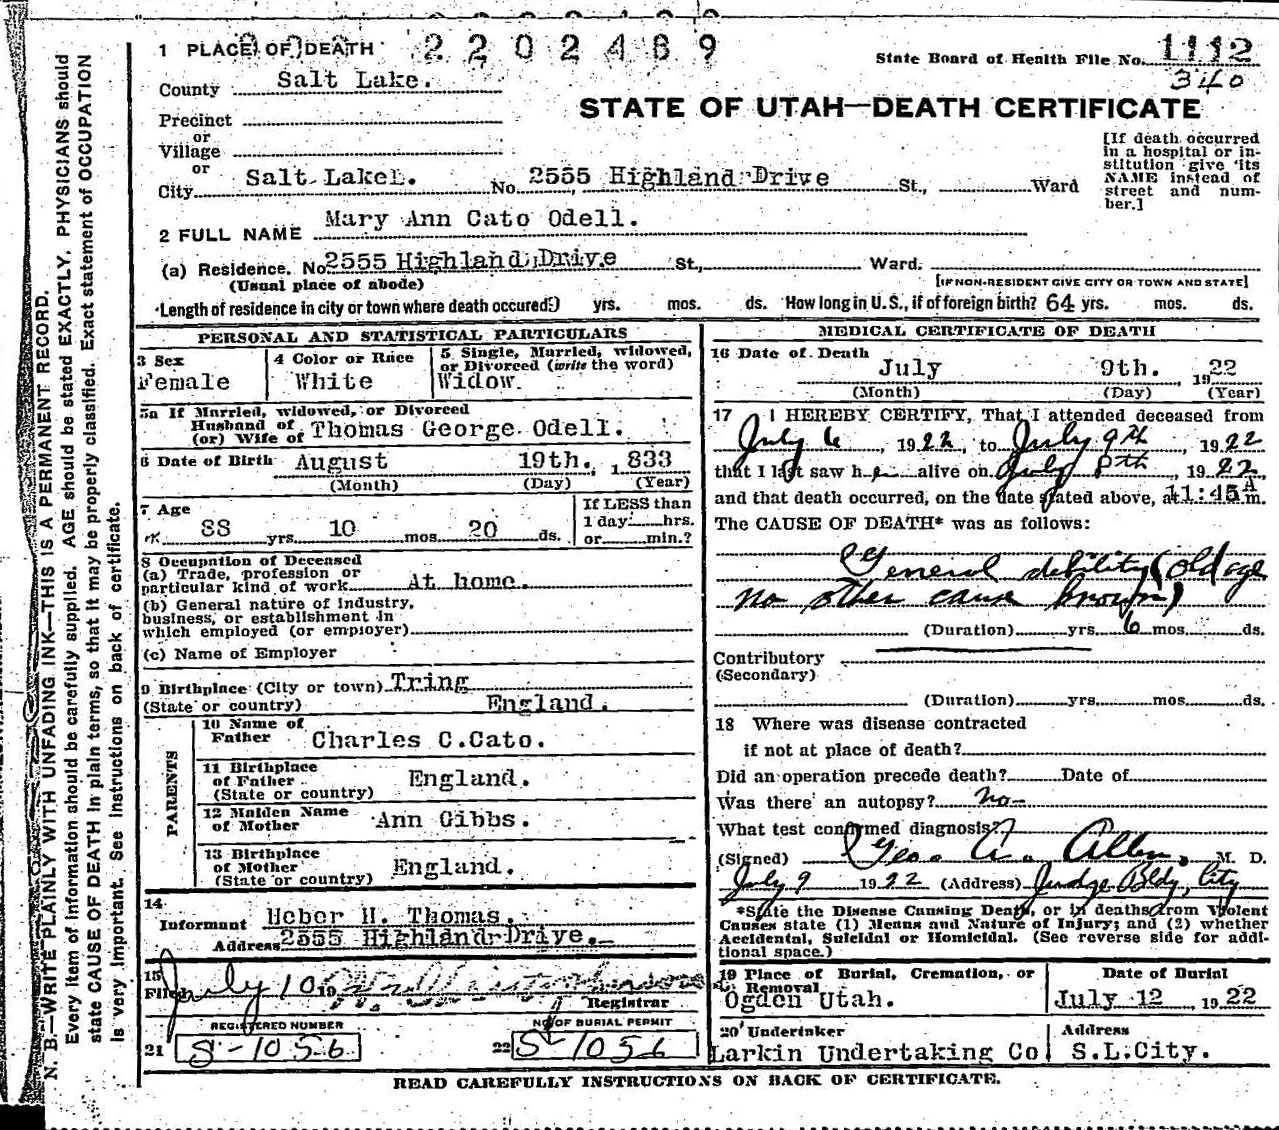 2202489
1 PLACE OF DEATH
State Board of Health File No. 1112
340
County Salt Lake.
STATE OF UTAH—DEATH CERTIFICATE
Precinct
or
Village
or
City Salt LakeL. No. 2555 Highland Drive St., Ward
[If death occurred
in a hospital or in-
stitution give its
NAME instead of
street and num-
ber.]
2 FULL NAME Mary Ann Cato Odell.
(a) Residence. No 2555 Highland Drive St., Ward.
(Usual place of abode) [IF NON-RESIDENT GIVE CITY OR TOWN AND STATE]
Length of residence in city or town where death occured? yrs. mos. ds. How long in U.S., if of foreign birth? 64 yrs. mos. ds.
PERSONAL AND STATISTICAL PARTICULARS
3 Sex
Female
4 Color or Race
White
5 Single, Married, widowed,
or Divorced (write the word)
Widow.
5a If Married, widowed, or Divorced
Husband of
(or) Wife of Thomas George Odell.
6 Date of Birth August 19th. 1833
(Month) (Day) (Year)
7 Age
88 yrs. 10 mos 20 ds.
If LESS than
1 day hrs.
or min.?
8 Occupation of Deceased
(a) Trade, profession or
particular kind of work At home.
(b) General nature of industry,
business, or establishment in
which employed (or employer)
(c) Name of Employer
9 Birthplace (City or town) Tring
(State or country) England.
PARENTS
10 Name of
Father Charles C.Cato.
11 Birthplace
of Father England.
(State or country)
12 Maiden Name
of Mother Ann Gibbs.
13 Birthplace
of Mother England.
(State or country)
14
Informant Heber H. Thomas.
Address 2555 Highland Drive.
15
Filed July 10 19
Registrar
REGISTERED NUMBER
21 S-1056
NO OF BURIAL PERMIT
22 S-1056
MEDICAL CERTIFICATE OF DEATH
16 Date of Death
July 9th. 1922
(Month) (Day) (Year)
17 I HEREBY CERTIFY, That I attended deceased from
July 6, 1922, to July 9th, 1922
that I last saw her alive on July 8th, 1922,
and that death occurred, on the date stated above, at 11:45A m.
The CAUSE OF DEATH* was as follows:
General debility (old age
no other cause known)
(Duration) yrs. 6 mos. ds.
Contributory
(Secondary)
(Duration) yrs. mos. ds.
18 Where was disease contracted
if not at place of death?
Did an operation precede death? Date of
Was there an autopsy? no
What test confirmed diagnosis?
(Signed) Geo. A. Allen, M. D.
July 9 1922 (Address) Judge Bldg, City
*State the Disease Causing Death, or in deaths from Violent
Causes state (1) Means and Nature of Injury; and (2) whether
Accidental, Suicidal or Homicidal. (See reverse side for addi-
tional space.)
19 Place of Burial, Cremation, or
Removal
Ogden Utah.
Date of Burial
July 12, 1922
20 Undertaker
Larkin Undertaking Co
Address
S.L.City.
READ CAREFULLY INSTRUCTIONS ON BACK OF CERTIFICATE.
N. B.—WRITE PLAINLY WITH UNFADING INK—THIS IS A PERMANENT RECORD.
Every item of information should be carefully supplied. AGE should be stated EXACTLY. PHYSICIANS should
state CAUSE OF DEATH in plain terms, so that it may be properly classified. Exact statement of OCCUPATION
is very important. See instructions on back of certificate.